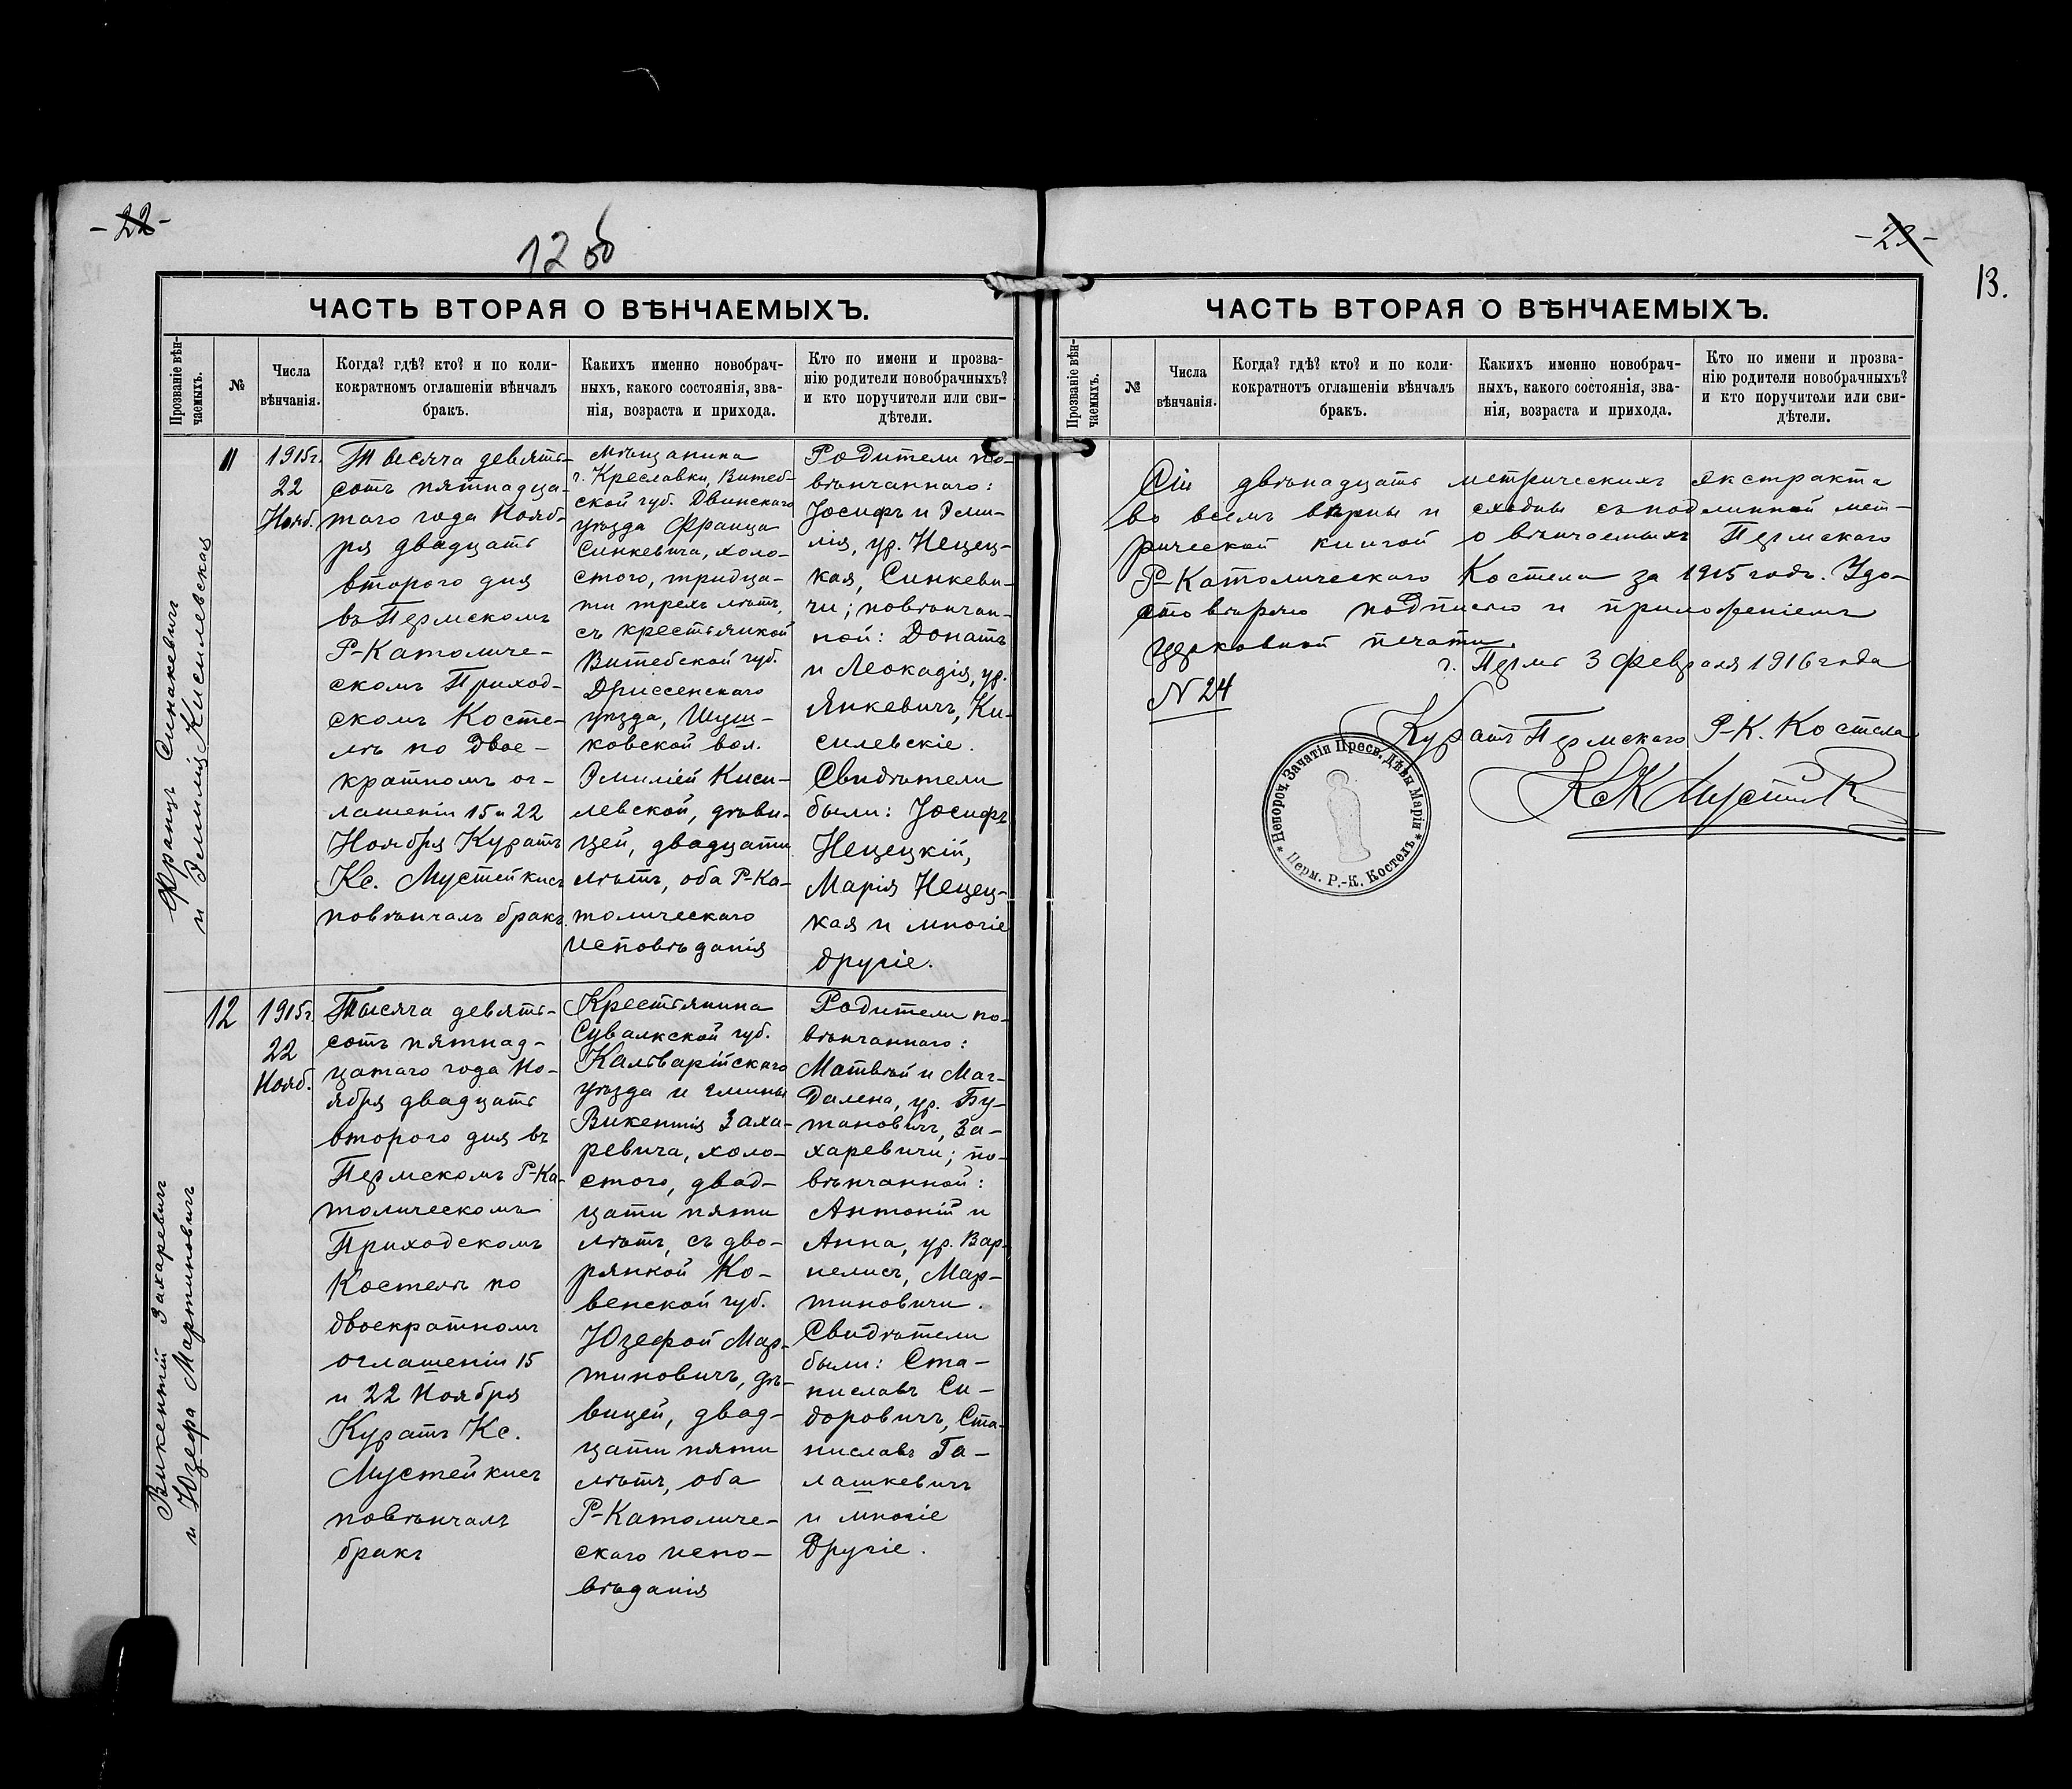 -22-
12 об
ЧАСТЬ ВТОРАЯ О ВѢНЧАЕМЫХЪ.
Прозваніе вѣн-
чаемыхъ.
№
Числа
вѣнчанія.
Когда? гдѣ? кто? и по коли-
кократномъ оглашеніи вѣнчалъ
бракъ.
Какихъ именно новобрач-
ныхъ, какого состоянія, зва-
нія, возраста и прихода.
Кто по имени и прозва-
нію родители новобрачныхъ?
и кто поручители или сви-
дѣтели.
Францъ Синакевичъ
и Эмилія Кисилевская
11
1915г.
22
Нояб.
Тысяча девять-
сотъ пятнадца-
таго года Нояб-
ря двадцать
второго дня
въ Пермскомъ
Р-Католиче-
скомъ Приход-
скомъ Косте-
лѣ по двое-
кратномъ ог-
лашеніи 15 и 22
Ноября Куратъ
Кс. Мустейкисъ
повѣнчалъ бракъ.
Мѣщанина
г. Креславки, Витеб-
ской губ. Двинскаго
уѣзда Франца
Синкевича, холо-
стого, тридца-
ти трехъ лѣтъ,
съ крестьянкой
Витебской губ.
Дриссенскаго
уѣзда,
ковской вол.
Эмиліей Киси-
левской, дѣви-
цей, двадцати
лѣтъ, оба Р-Ка-
толическаго
исповѣданія
Родители по-
вѣнчаннаго:
Іосифъ и Эми-
лія, ур. Нецец-
кая, Синкеви-
чи; повѣнчан-
ной: Донатъ
и Леокадія, ур.
Янкевичъ, Ки-
силевскіе.
Свидѣтели
были: Іосифъ
Нецецкій,
Марія Нецец-
кая и многіе
другіе.
Викентій Захаревичъ
и Юзефа Мартиновичъ
12
1915г.
22
Нояб.
Тысяча девять-
сотъ пятнад-
цатаго года Но-
ября двадцать
второго дня въ
Пермскомъ Р-Ка-
толическомъ
Приходскомъ
Костелѣ по
двоекратномъ
оглашеніи 15
и 22 Ноября
Куратъ Кс.
Мустейкисъ
повѣнчалъ
бракъ
Крестьянина
Сувалкской губ.
Кальварійскаго
уѣзда и гмины
Викентія Заха-
ревича, холо-
стого, двад-
цати пяти
лѣтъ, съ дво-
рянкой Ко-
венской губ.
Юзефой Мар-
тиновичъ, дѣ-
вицей, двад-
цати пяти
лѣтъ, оба
Р-Католиче-
скаго испо-
вѣданія
Родители по-
вѣнчаннаго:
Матвѣй и Маг-
далена, ур. Бу-
тановичъ, За-
харевичи; по-
вѣнчанной:
Антоній и
Анна, ур. Вар-
нелисъ, Мар-
тиновичи.
Свидѣтели
были: Ста-
ниславъ Си-
доровичъ, Ста-
ниславъ Га-
лашкевичъ
и многіе
другіе.
-23-
13.
ЧАСТЬ ВТОРАЯ О ВѢНЧАЕМЫХЪ.
Прозваніе вѣн-
чаемыхъ.
№
Числа
вѣнчанія.
Когда? гдѣ? кто? и по коли-
кократнотъ оглашеніи вѣнчалъ
бракъ.
Какихъ именно новобрач-
ныхъ, какого состоянія, зва-
нія, возраста и прихода.
Кто по имени и прозва-
нію родители новобрачныхъ?
и кто поручители или сви-
дѣтели.
Сіи двѣнадцать метрическихъ экстракта
во всемъ вѣрны и сходны съ подлинной мет-
рической книгой о вѣнчаемыхъ Пермскаго
Р-Католическаго Костела за 1915 годъ. Удо-
стовѣряю подписью и приложеніемъ
церковной печати.
г. Пермь 3 Февраля 1916 года
N 24
Куратъ Пермскаго Р-К. Костела
Непороч. Зачатія Пресв. Дѣвы Маріи * Перм. Р.-К. Костелъ *